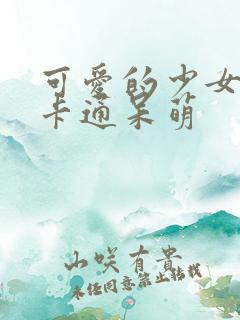 可愛的少女
卡通呆萌
山咲有貴
未经同意禁止转载